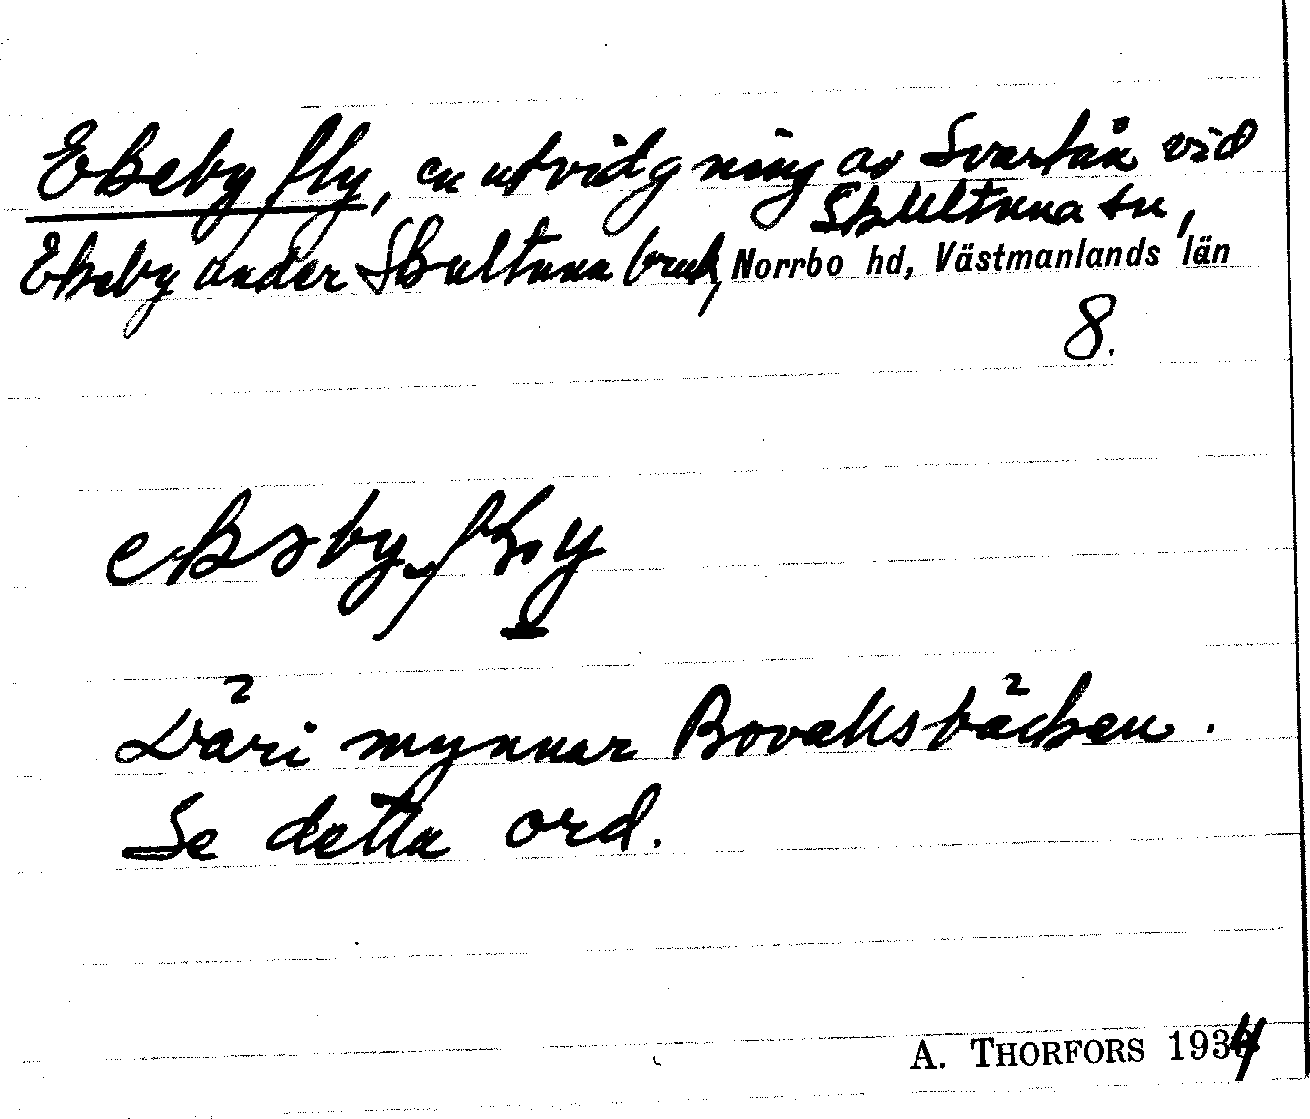 Ekeby fly, en utvidgning av Svartån vid
Skultuna sn,
Ekeby under Skultuna bruk, Norrbo hd, Västmanlands län
8.
Däri mynnar Bovallsbäcken.
Se detta ord.
A. THORFORS 1934